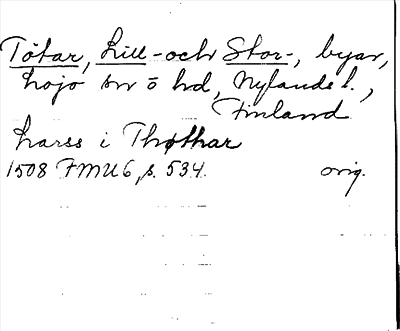 Tötar, Lill- och Stor-, byar,
Lojo sn ö hd, Nylands l.,
Finland
Larss i Thøthar
1508 FMU 6, s. 534. orig.